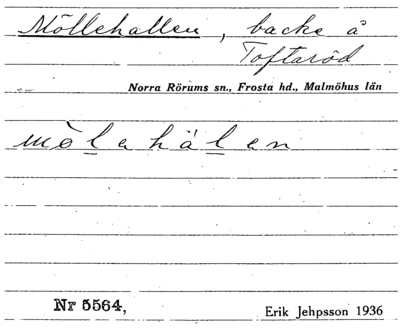 Möllehallen, backe å
Toftaröd
Norra Rörums sn., Frosta hd., Malmöhus län
mòlahálen
Nr 5564,
Erik Jehpsson 1936